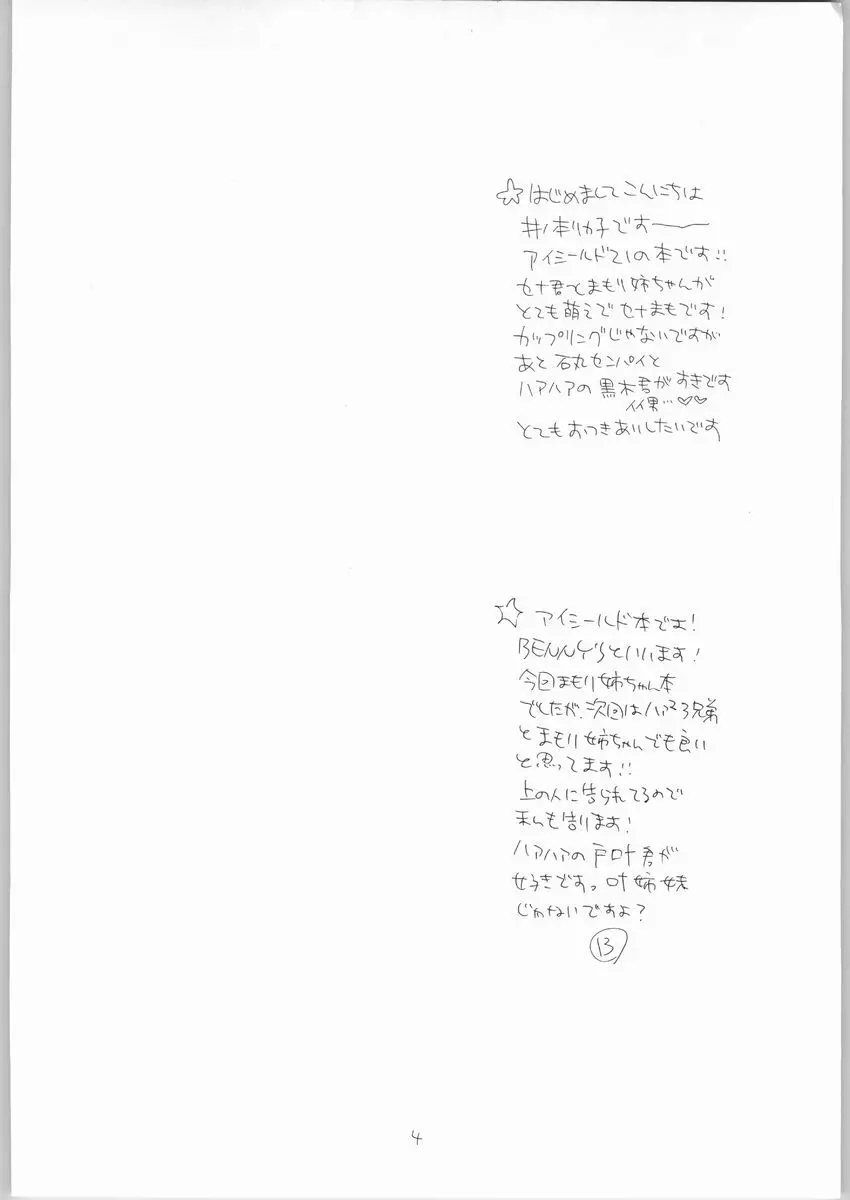 ☆はじめましてこんにちは
井ノ本リカ子です――
アイシールド21の本です!!
セナ君とまもり姉ちゃんが
とても萌えでセナまもです!
カップリングじゃないですが
あと 石丸センパイと
ハアハアの黒木君がすきです
イイ男…♡♡
とてもおつきあいしたいです
☆ アイシールド本です!
BENNY'Sといいます!
今回まもり姉ちゃん本
でしたが、次回はハァ×3兄弟
とまもり姉ちゃんでも良い
と思ってます!!
上の人に告られてるので
私も告ります!
ハアハアの戸叶君が
好きですっ 叶姉妹
じゃないですよ?
B
4